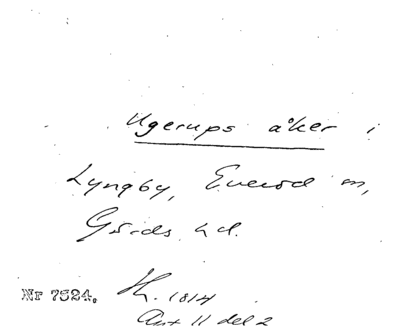 Ugerups åker i
Lyngby, Everöd m,
Gärds hd.
Nr 7524. 1814
Ant 11 del 2